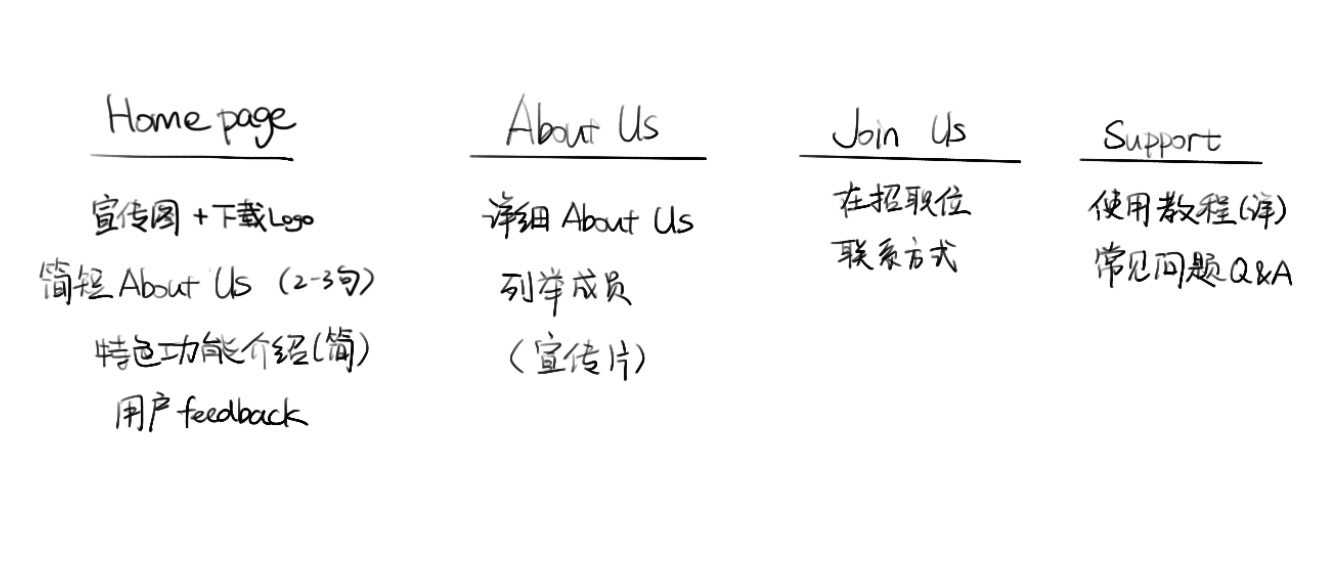 Home page
宣传图 + 下载Logo
简短 About Us (2-3句)
特色功能介绍(简)
用户 feedback
About Us
详细 About Us
列举成员
(宣传片)
Join Us
在招职位
联系方式
Support
使用教程(详)
常见问题 Q&A